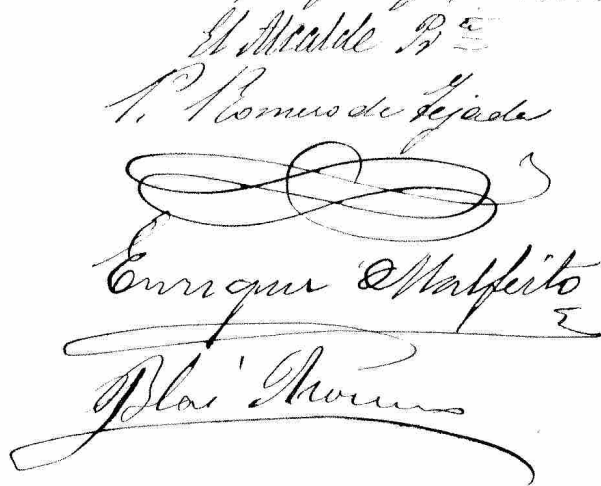 El Alcalde Pª
P. Romero de Tejada
Enrique Malfeito
Blas